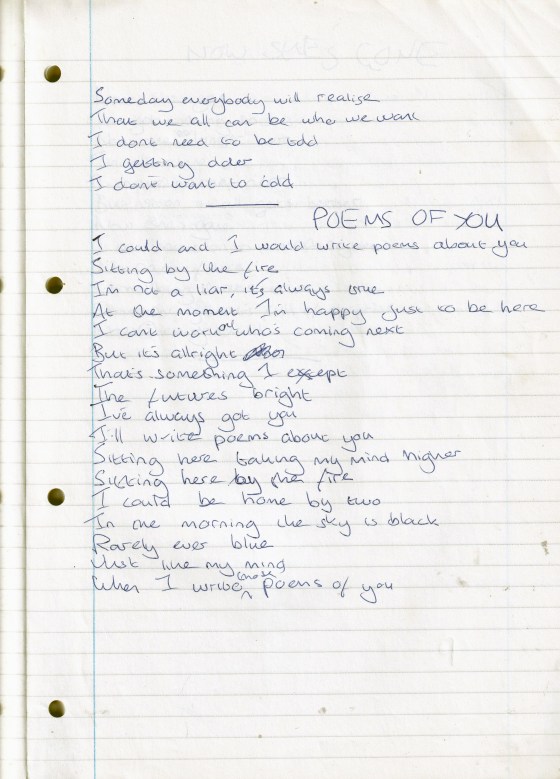 Someday everybody will realise
That we all can be who we want
I dont need to be told
I getting older
I dont want to cold
POEMS OF YOU
I could and I would write poems about you
Sitting by the fire
I'm not a liar, it's always true
At the moment I'm happy just to be here
I cant work out who's coming next
But it's allright
That's something I except
The futures bright
I've always got you
I'll write poems about you
Sitting here taking my mind higher
Sitting here by the fire
I could be home by two
In the morning the sky is black
Rarely ever blue
Just like my mind
When I write these poems of you